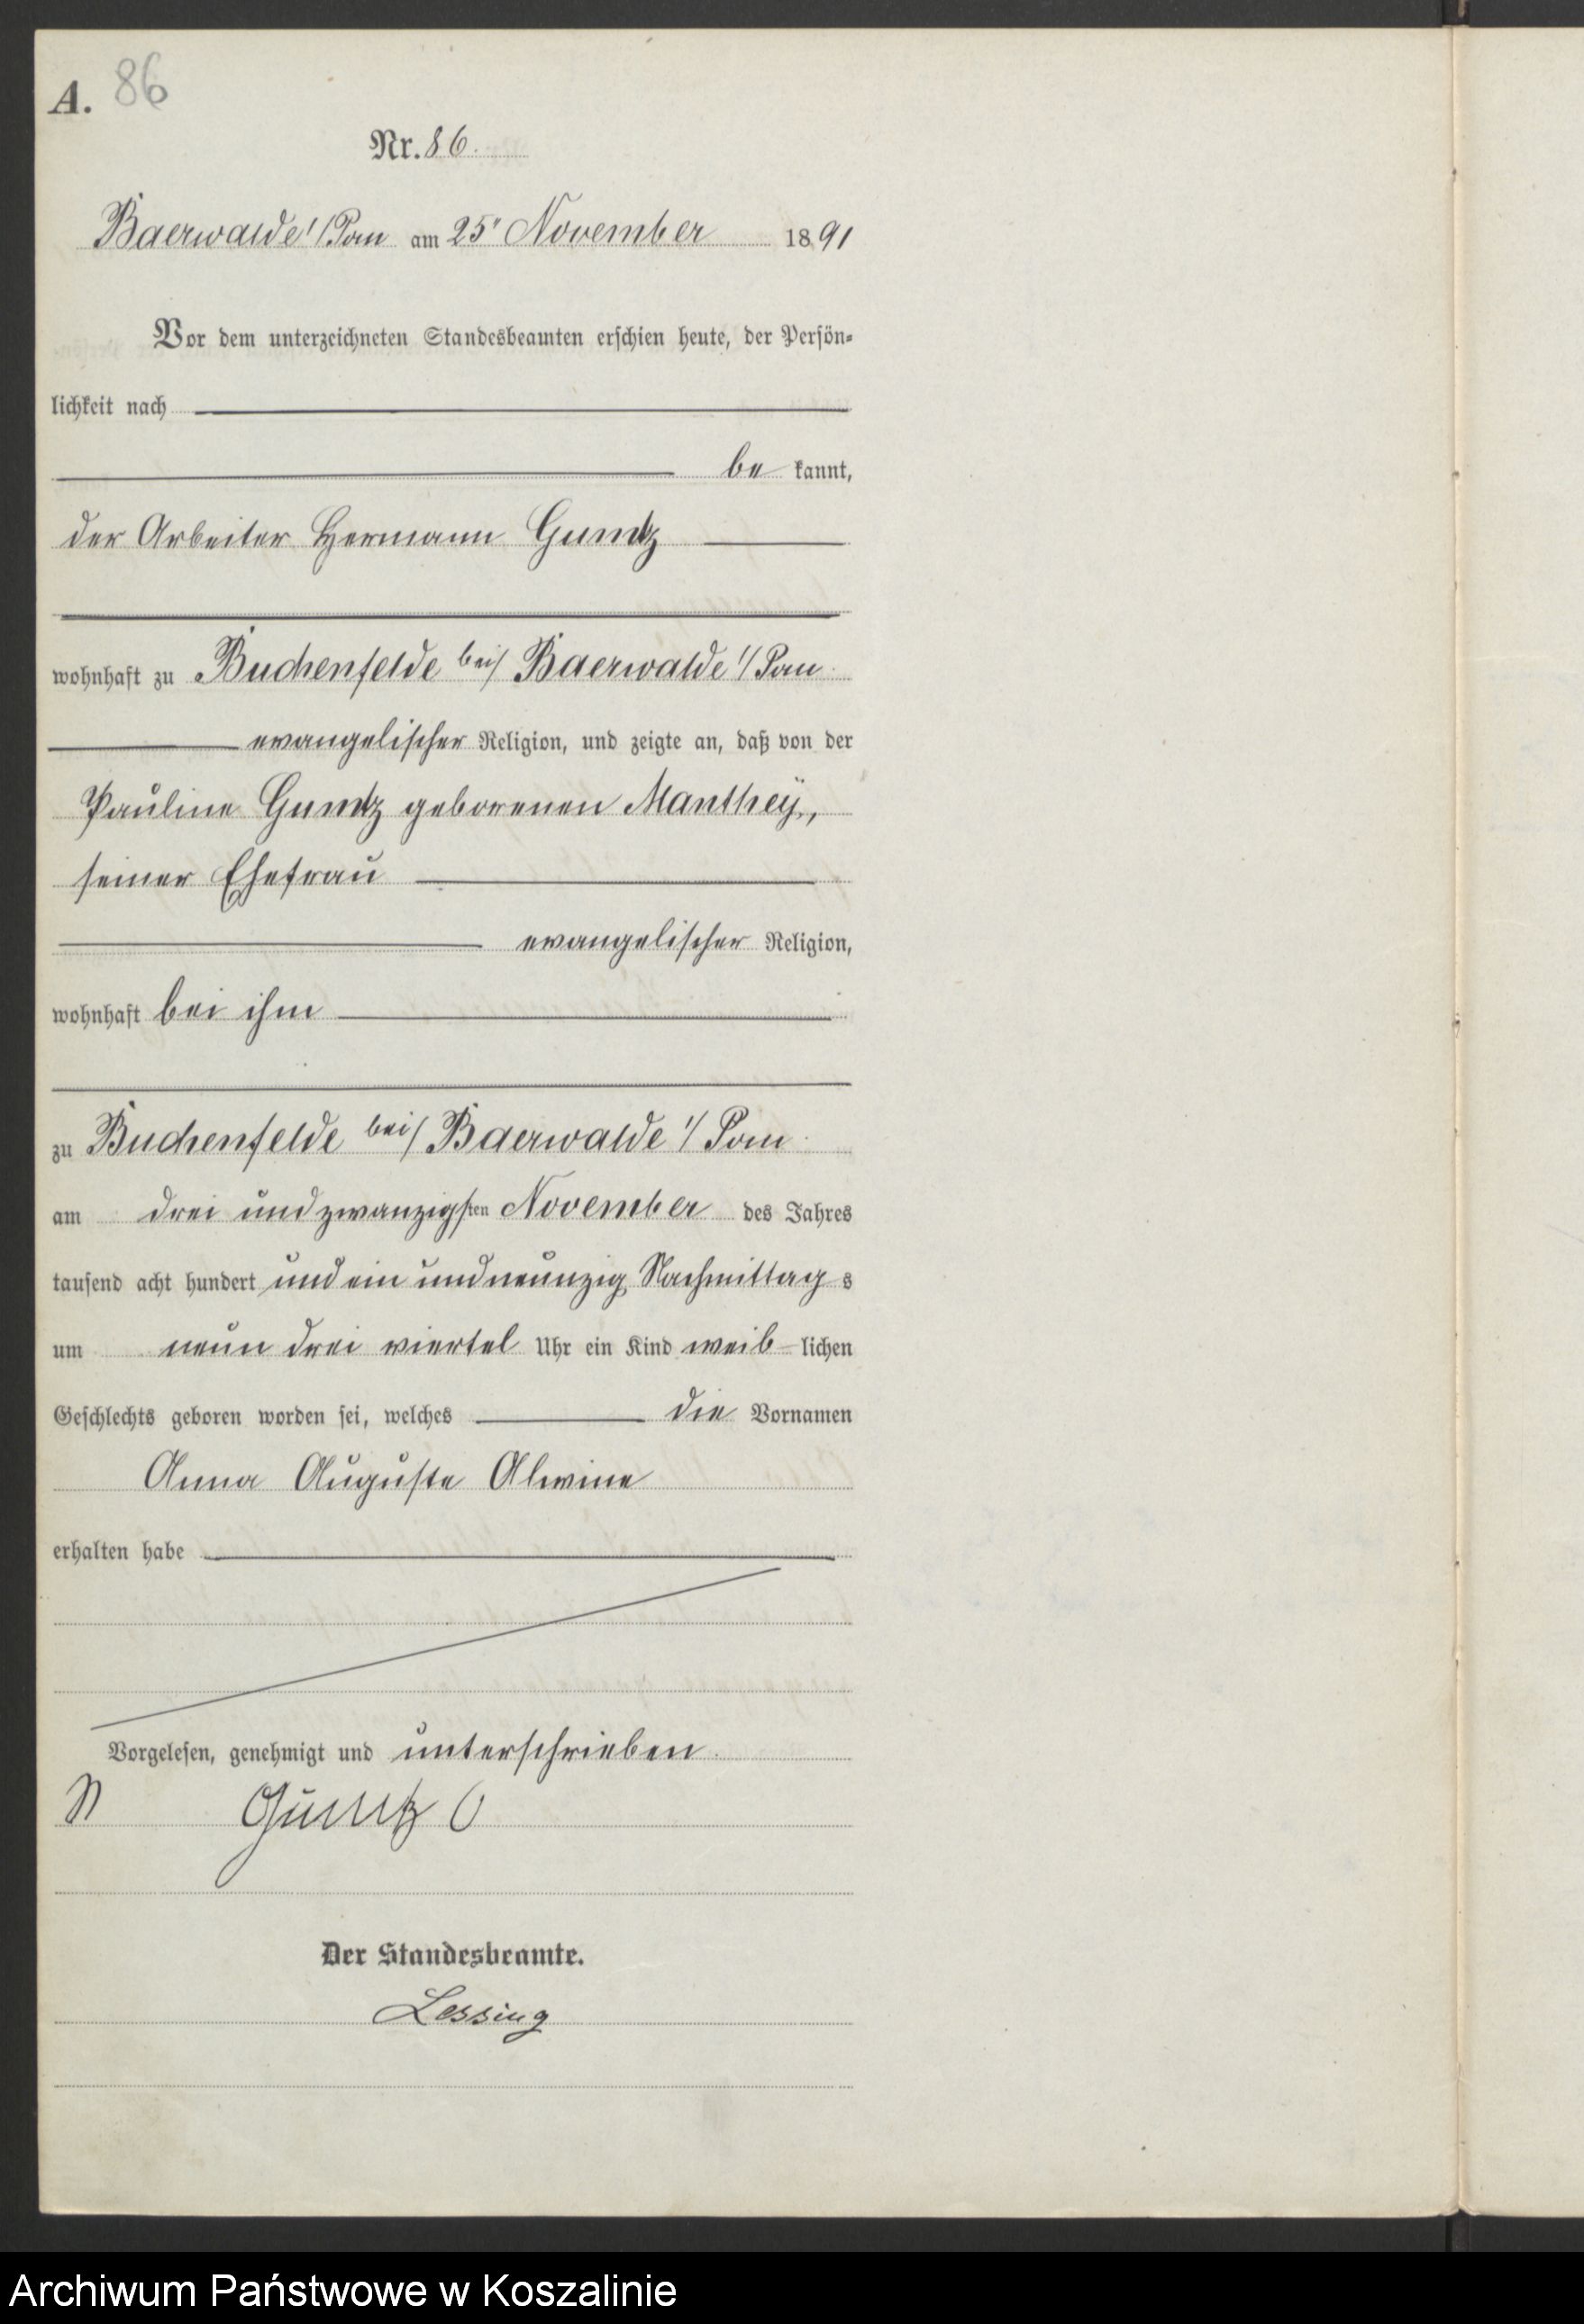 A. 86
Nr. 86.
Baerwalde i/Pom am 25" November 1891
Vor dem unterzeichneten Standesbeamten erschien heute, der Persön-
lichkeit nach
be kannt,
der Arbeiter Hermann Gumtz
wohnhaft zu Buchenfelde bei/ Baerwalde i/Pom
evangelischer Religion, und zeigte an, daß von der
Pauline Gumtz geborenen Manthey,
seiner Ehefrau
evangelischer Religion,
wohnhaft bei ihm
zu Buchenfelde bei/ Baerwalde i/Pom
am drei und zwanzigsten November des Jahres
tausend acht hundert und ein und neunzig Nachmittag s
um neun drei viertel Uhr ein Kind weib-lichen
Geschlechts geboren worden sei, welches die Vornamen
Anna Auguste Alwine
erhalten habe
Vorgelesen, genehmigt und unterschrieben.
Gumtz
Der Standesbeamte.
Lessing
Archiwum Państwowe w Koszalinie